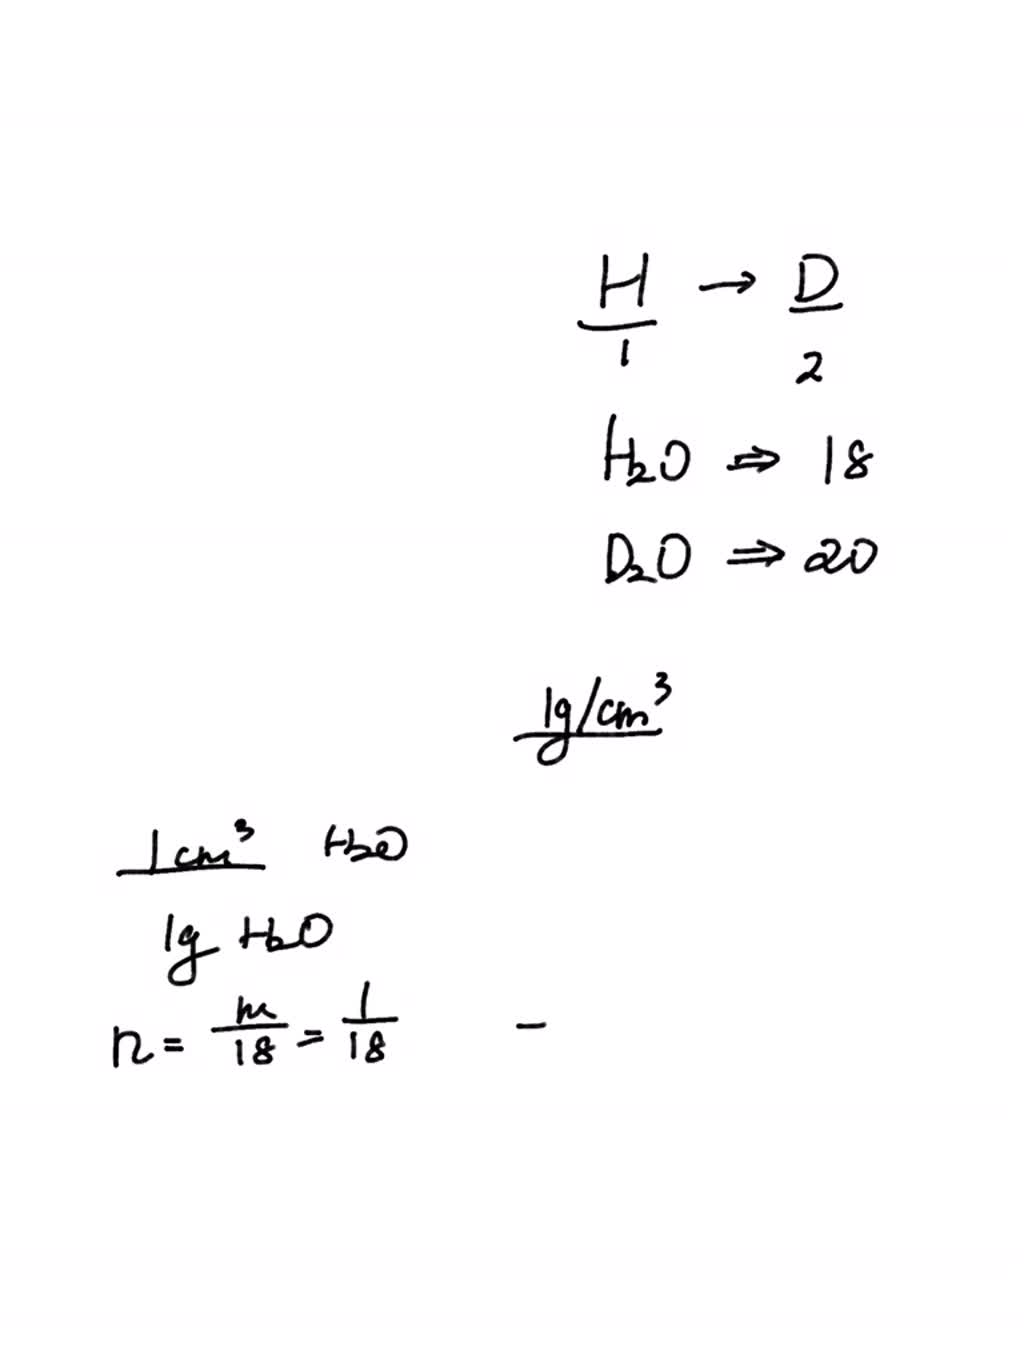 H → D
1 2
H₂O ⇒ 18
D₂O ⇒ 20
1g/cm³
1cm³ H₂O
1g H₂O
n = m/18 = 1/18 –